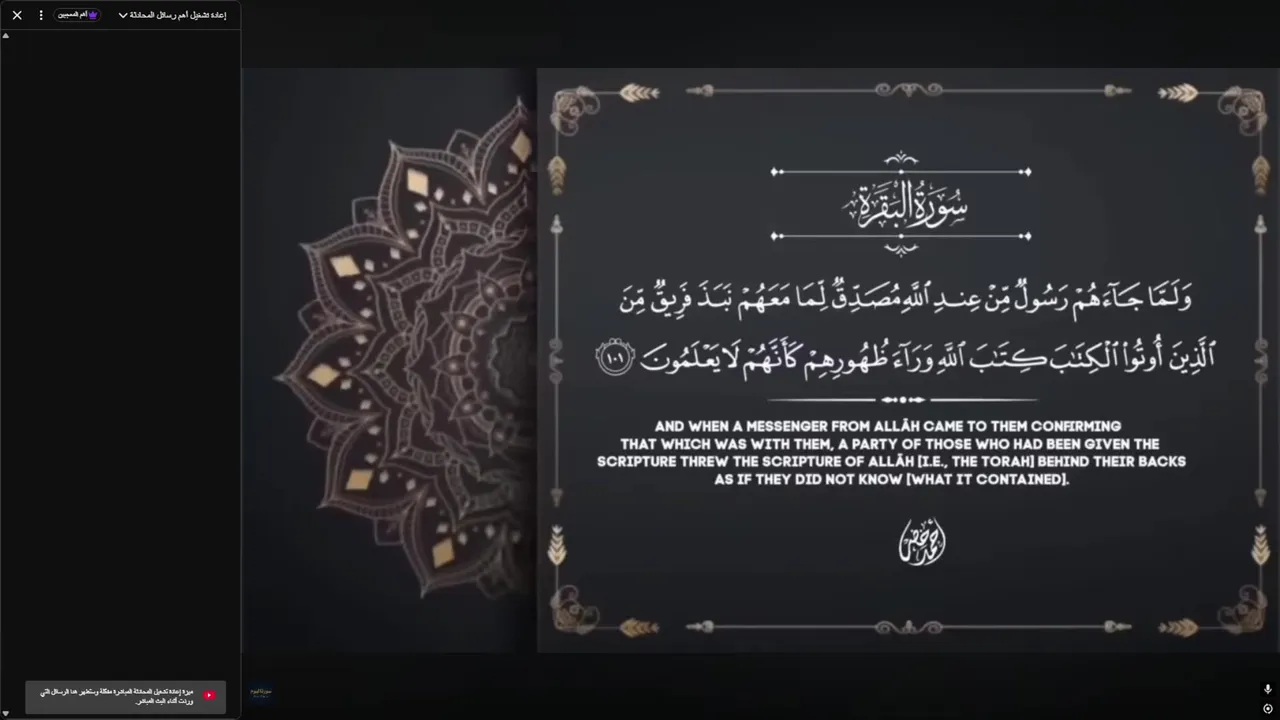 إعادة تشغيل أهم رسائل المحادثة
أهم المعجبين
سُورَةُ البَقَرَةِ
وَلَمَّا جَآءَهُمْ رَسُولٌ مِّنْ عِندِ ٱللَّهِ مُصَدِّقٌ لِّمَا مَعَهُمْ نَبَذَ فَرِيقٌ مِّنَ
ٱلَّذِينَ أُوتُوا۟ ٱلْكِتَـٰبَ كِتَـٰبَ ٱللَّهِ وَرَآءَ ظُهُورِهِمْ كَأَنَّهُمْ لَا يَعْلَمُونَ ١٠١
AND WHEN A MESSENGER FROM ALLĀH CAME TO THEM CONFIRMING
THAT WHICH WAS WITH THEM, A PARTY OF THOSE WHO HAD BEEN GIVEN THE
SCRIPTURE THREW THE SCRIPTURE OF ALLĀH [I.E., THE TORAH] BEHIND THEIR BACKS
AS IF THEY DID NOT KNOW [WHAT IT CONTAINED].
ميزة إعادة تشغيل المحادثة المباشرة مفعّلة وستظهر هنا الرسائل التي
وردت أثناء البث المباشر.